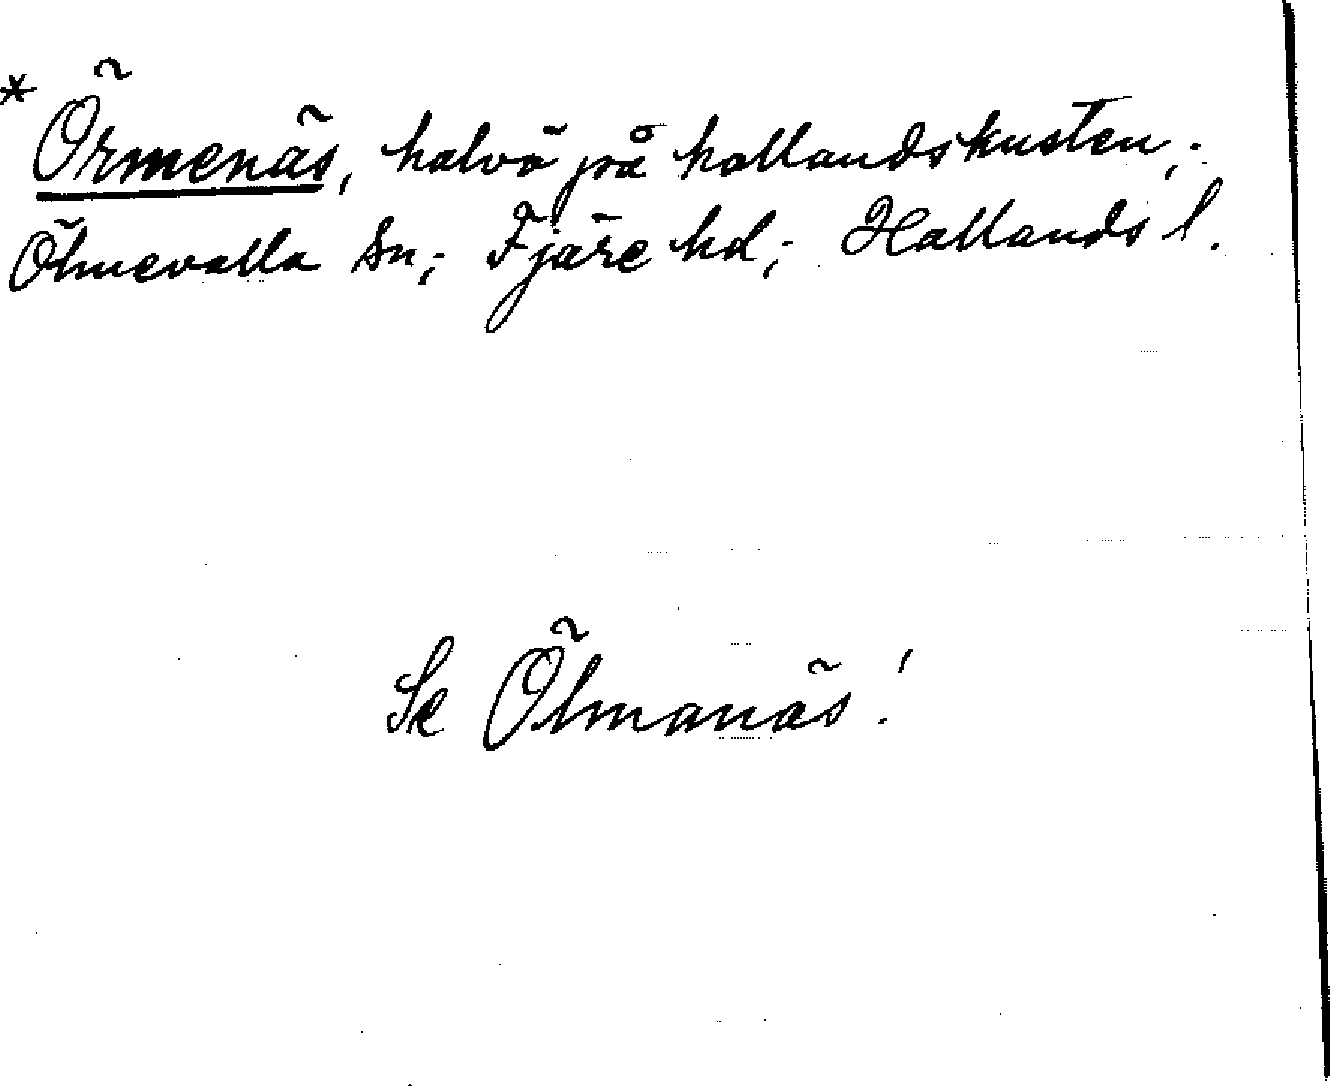 * Örmenäs, halvö på hallandskusten;
Ölmevalla sn; Fjäre hd; Hallands l.
Se Ölmanäs!